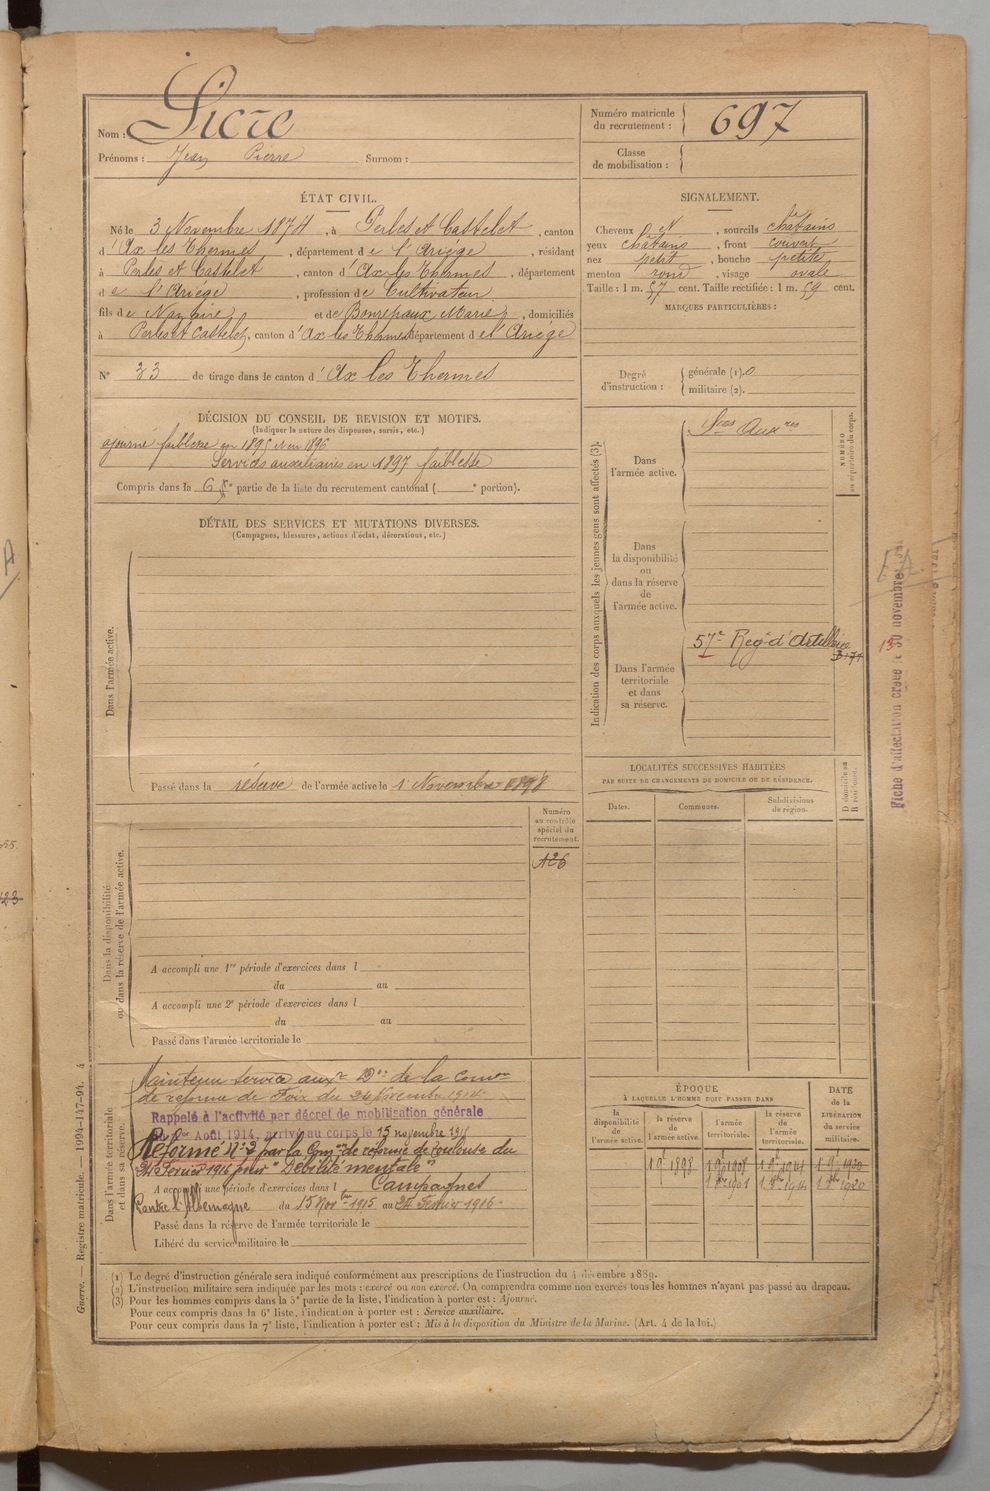 Nom : Sicre
Prénoms : Jean Pierre Surnom :
Numéro matricule
du recrutement : 697
Classe
de mobilisation :
ÉTAT CIVIL.
Né le 3 Novembre 1874, à Perles et Castelet, canton
d'Ax les Thermes, département de l'Ariège, résidant
à Perles et Castelet, canton d'Ax les Thermes, département
de l'Ariège, profession de Cultivateur
fils de Nazaire et de Bonrepaux Marie, domiciliés
à Perles et Castelet, canton d'Ax les Thermes, département de l'Ariège
N° 33 de tirage dans le canton d'Ax les Thermes
SIGNALEMENT.
Cheveux et, sourcils châtains
yeux châtains, front couvert
nez petit, bouche petite
menton rond, visage ovale
Taille : 1 m. 57 cent. Taille rectifiée : 1 m. 59 cent.
MARQUES PARTICULIÈRES :
Degré
d'instruction :
générale (1). 0
militaire (2).
DÉCISION DU CONSEIL DE REVISION ET MOTIFS.
(Indiquer la nature des dispenses, sursis, etc.)
ajourné faiblesse en 1895 et en 1896
Services auxiliaires en 1897 faiblesse
Compris dans la 6e partie de la liste du recrutement cantonal ( e portion).
DÉTAIL DES SERVICES ET MUTATIONS DIVERSES.
(Campagnes, blessures, actions d'éclat, décorations, etc.)
Dans l'armée active.
Passé dans la réserve de l'armée active le 1 Novembre 1898
Indication des corps auxquels les jeunes gens sont affectés (3).
Dans
l'armée active.
Sces Auxres
NUMÉRO
au répertoire du corps.
Dans
la disponibilité
ou
dans la réserve
de
l'armée active.
Dans l'armée
territoriale
et dans
sa réserve.
57e Regt d'Artillerie
Fiche d'affectation créée le 30 novembre
LOCALITÉS SUCCESSIVES HABITÉES
PAR SUITE DE CHANGEMENTS DE DOMICILE OU DE RÉSIDENCE.
Dates. Communes. Subdivisions
de région.
D domicile ou
R résidence.
Numéro
au contrôle
spécial du
recrutement.
126
Dans la disponibilité
ou dans la réserve de l'armée active.
A accompli une 1re période d'exercices dans l
du au
A accompli une 2e période d'exercices dans l
du au
Passé dans l'armée territoriale le
Dans l'armée territoriale
et dans sa réserve.
Maintenu service auxre Don de la Comon
de réforme de Foix du 24 Novembre 1914
Rappelé à l'activité par décret de mobilisation générale
du 1er Août 1914, arrivé au corps le 15 novembre 1915
Réformé N°2 par la Comon de réforme de Toulouse du
24 Février 1916 pour "Débilité mentale"
A accompli une période d'exercices dans l Campagnes
Contre l'Allemagne du 15 Nov bre 1915 au 24 Février 1916
Passé dans la réserve de l'armée territoriale le
Libéré du service militaire le
ÉPOQUE
À LAQUELLE L'HOMME DOIT PASSER DANS
la
disponibilité
de
l'armée active.
la réserve
de
l'armée active.
l'armée
territoriale.
la réserve
de
l'armée
territoriale.
DATE
de la
LIBÉRATION
du service
militaire.
1 9bre 1898 1 9bre 1908 1 9bre 1914 1 9bre 1920
(1) Le degré d'instruction générale sera indiqué conformément aux prescriptions de l'instruction du 4 décembre 1889.
(2) L'instruction militaire sera indiquée par les mots : exercé ou non exercé. On comprendra comme non exercés tous les hommes n'ayant pas passé au drapeau.
(3) Pour les hommes compris dans la 5e partie de la liste, l'indication à porter est : Ajourné.
Pour ceux compris dans la 6e liste, l'indication à porter est : Service auxiliaire.
Pour ceux compris dans la 7e liste, l'indication à porter est : Mis à la disposition du Ministre de la Marine. (Art. 4 de la loi.)
Guerre. — Registre matricule. — 1994-147-94. 4